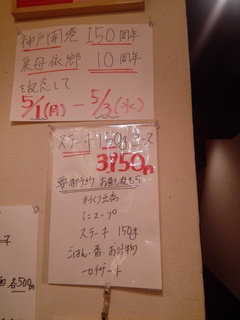 神戸開港 150周年
10周年
を記念して
5/1(月) - 5/3(水)
ステーキ 150g コース
3,750円
要御予約
手づくり豆腐
ミニスープ
ステーキ 150g
ごはん・香・お汁物
デザート
各500円